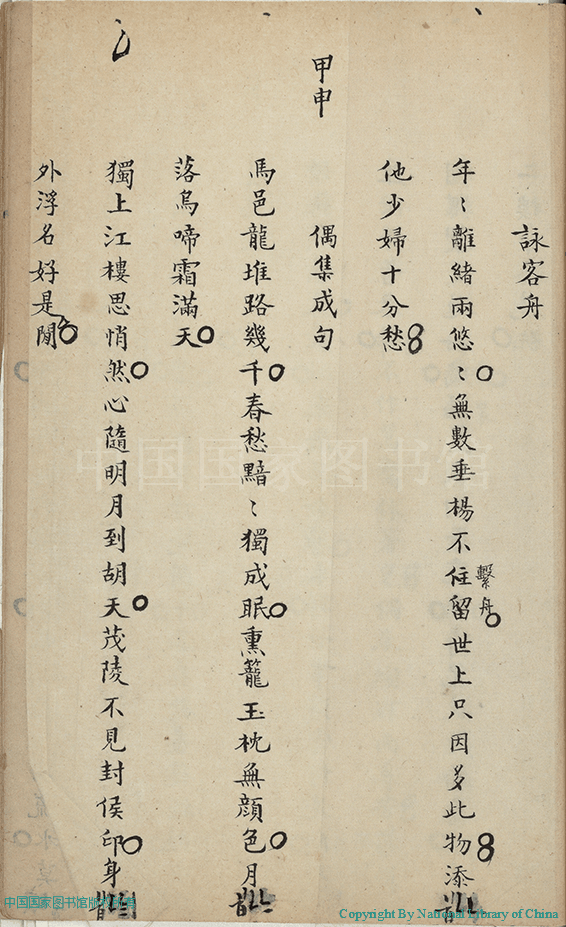 詠客舟
年〻離緒兩悠〻無數垂楊不住留世上只因多此物添
繫舟
他少婦十分愁
甲申
偶集成句
馬邑龍堆路幾千春愁黯〻獨成眠熏籠玉枕無顏色月
落烏啼霜滿天
獨上江樓思悄然心隨明月到胡天茂陵不見封侯印身
外浮名好是閒
中国国家图书馆
中国国家图书馆版权所有
Copyright By National Library of China